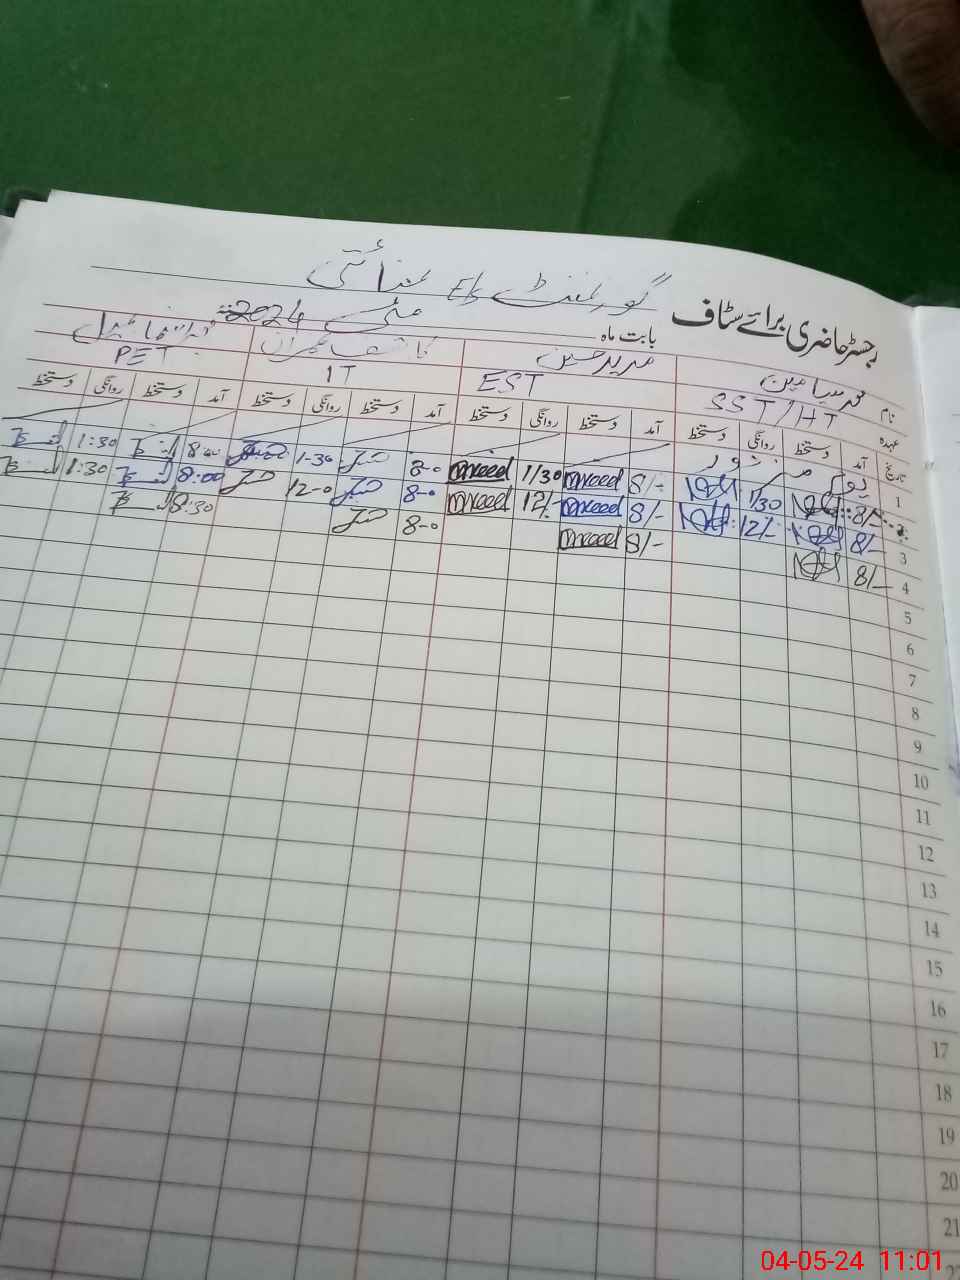 گورنمنٹ E/s
رجسٹر حاضری برائے سٹاف بابت ماہ مئی 2024
نام محمد امین مرید حسین کاشف عمران
عہدہ SST/HT EST IT PET
تاریخ آمد دستخط روانگی دستخط آمد دستخط روانگی دستخط آمد دستخط روانگی دستخط آمد دستخط روانگی دستخط
1 یوم مزدور
8/- 1/30 8/- mreed 1/30 mreed 8-0 1-30 8:00 1:30
3 8/- 12/- 8/- mreed 12/- mreed 8-0 12-0 8:00 1:30
4 8/- 8/- mreed 8-0 8:30
5
6
7
8
9
10
11
12
13
14
15
16
17
18
19
20
21
04-05-24 11:01